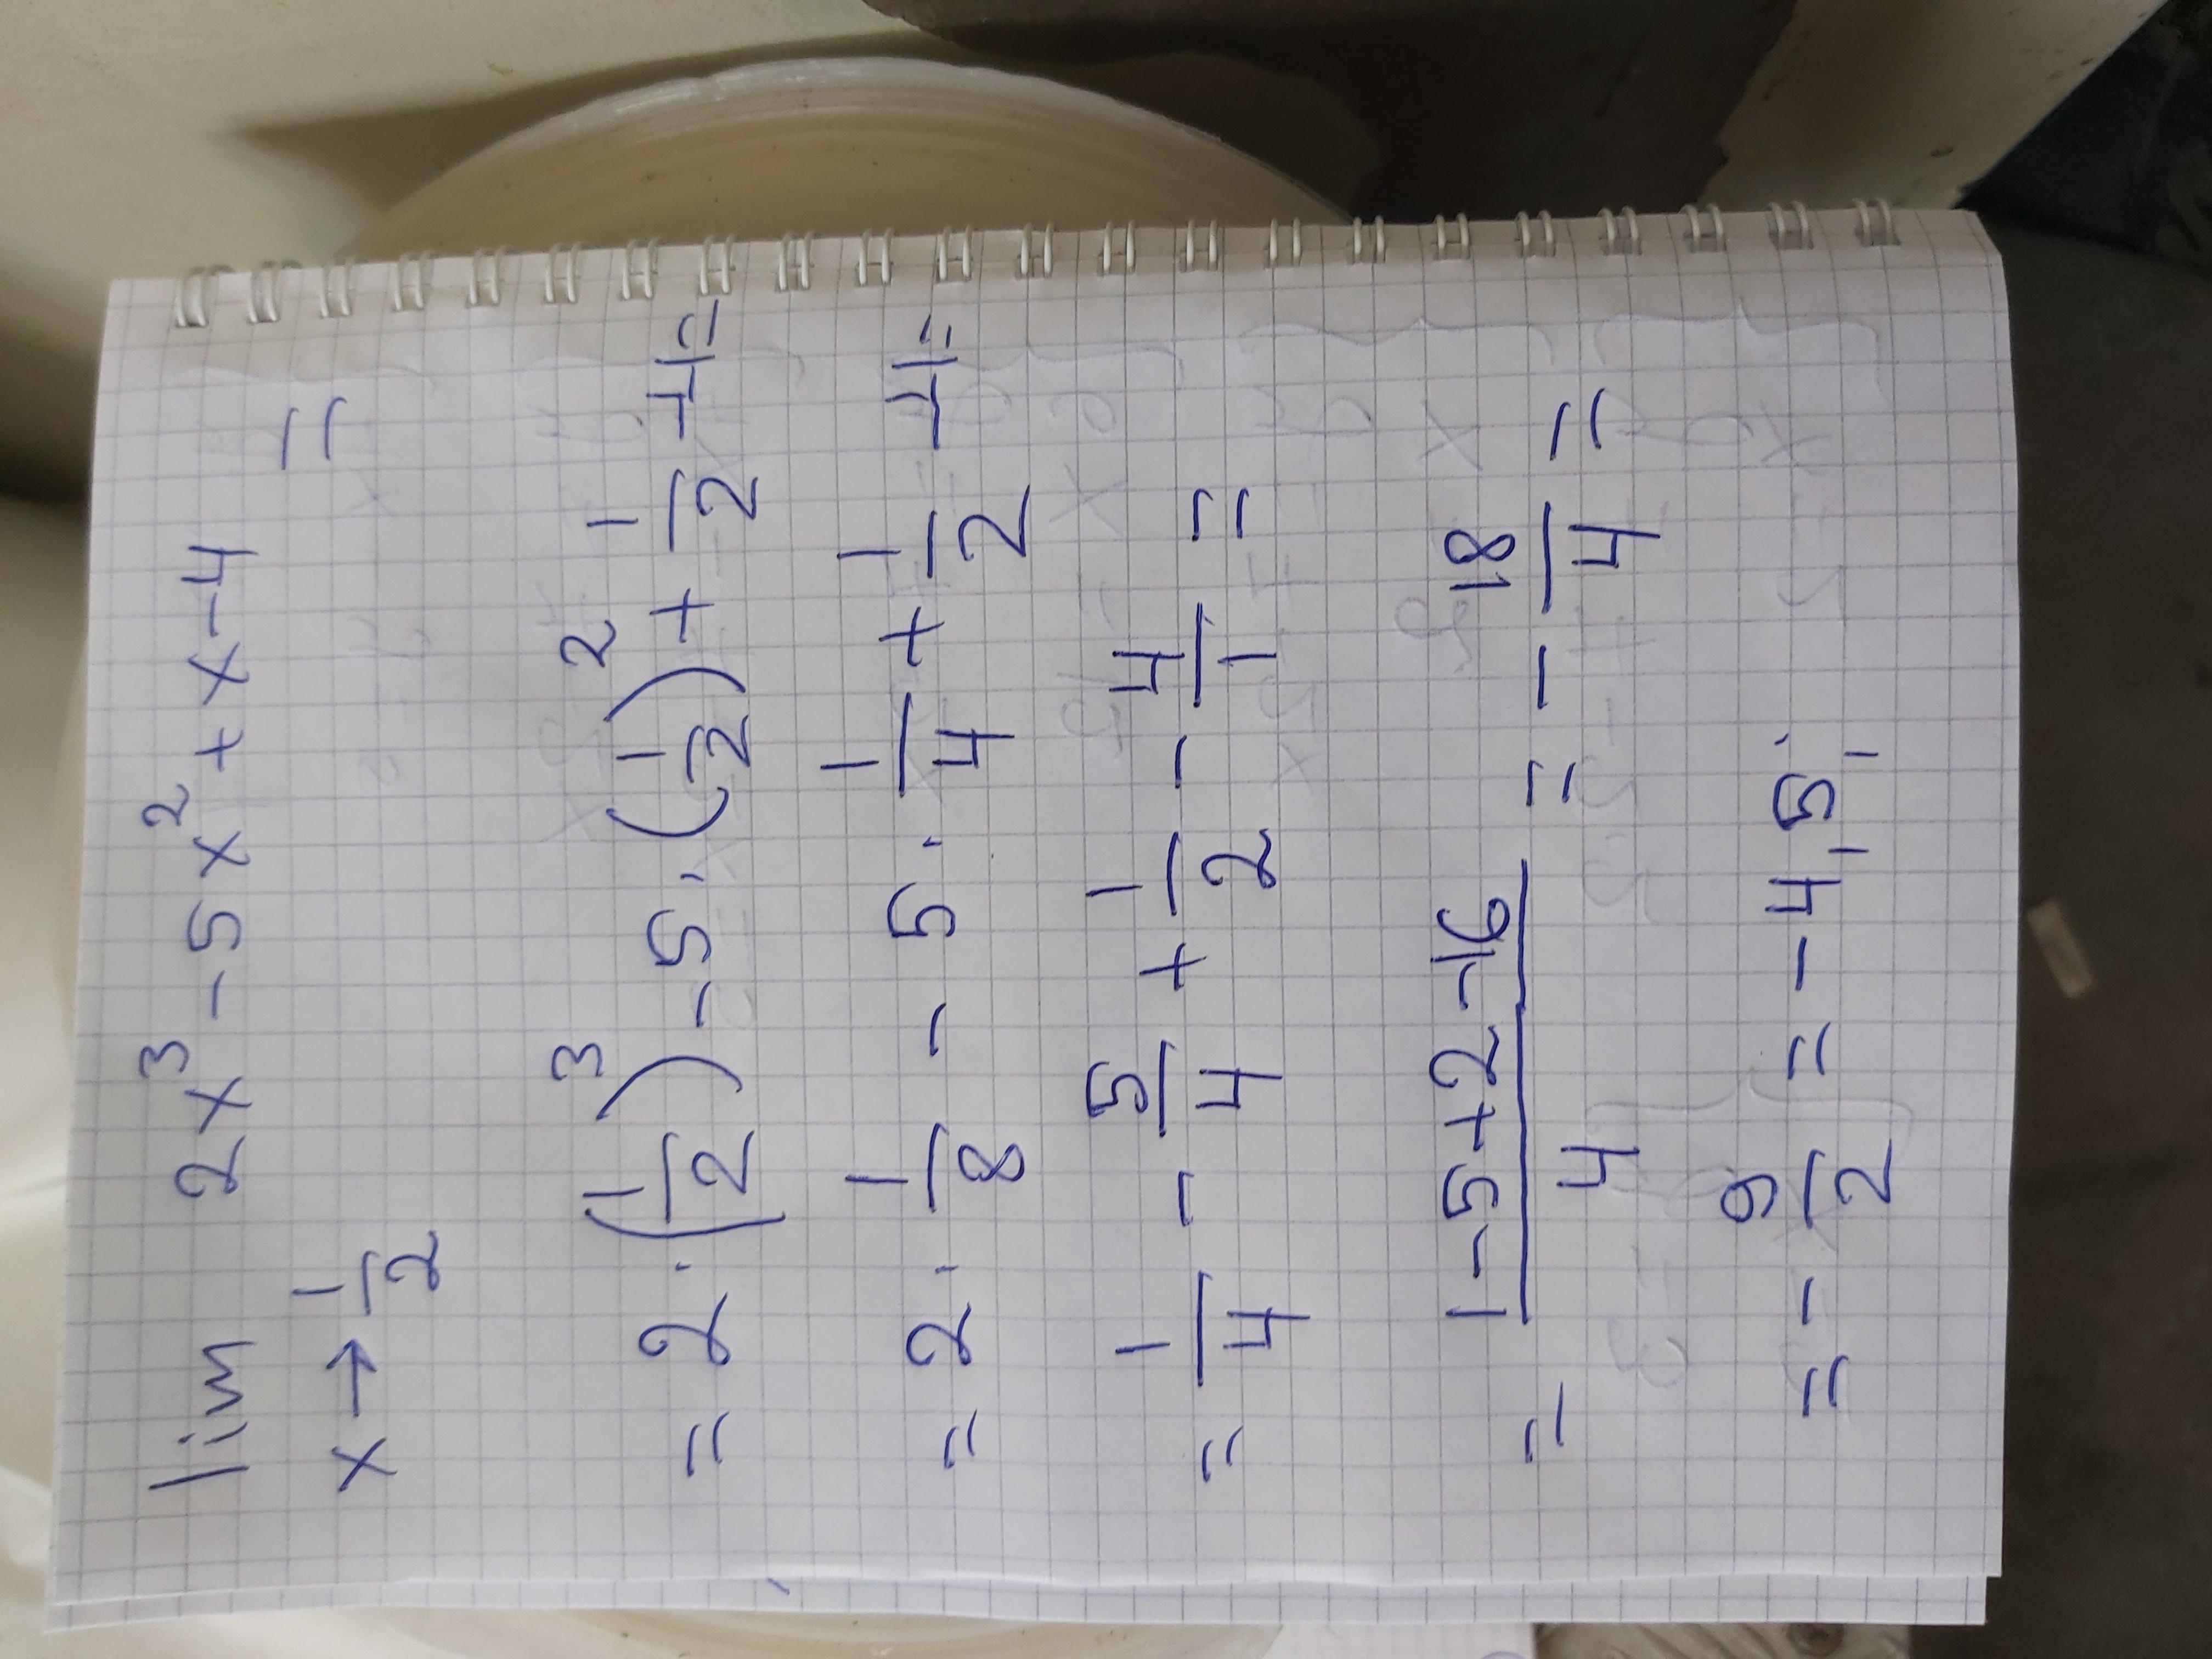 lim 2x³ - 5x² + x - 4 =
x → 1/2
= 2 · (1/2)³ - 5 · (1/2)² + 1/2 - 4 =
= 2 · 1/8 - 5 · 1/4 + 1/2 - 4 =
= 1/4 - 5/4 + 1/2 - 4/1 =
= (1 - 5 + 2 - 16)/4 = - 18/4 =
= - 9/2 = - 4,5